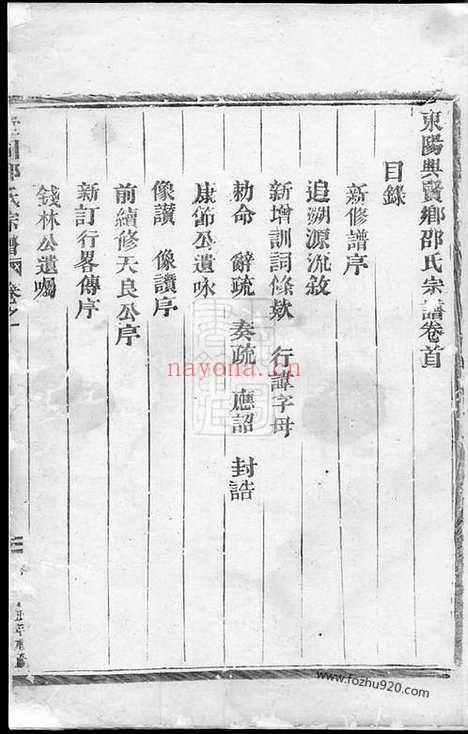 東陽興賢鄉邵氏宗譜卷首
目錄
新修譜序
追溯源流敘
新增訓詞條欵 行諱字母
勅命 辭疏 奏疏 應詔 封誥
康節公遺咏
像讚 像讚序
前續修天良公序
新訂行畧傳序
錢林公遺囑
氏宗譜 卷之一
nayona.cn
www.fozhu920.com